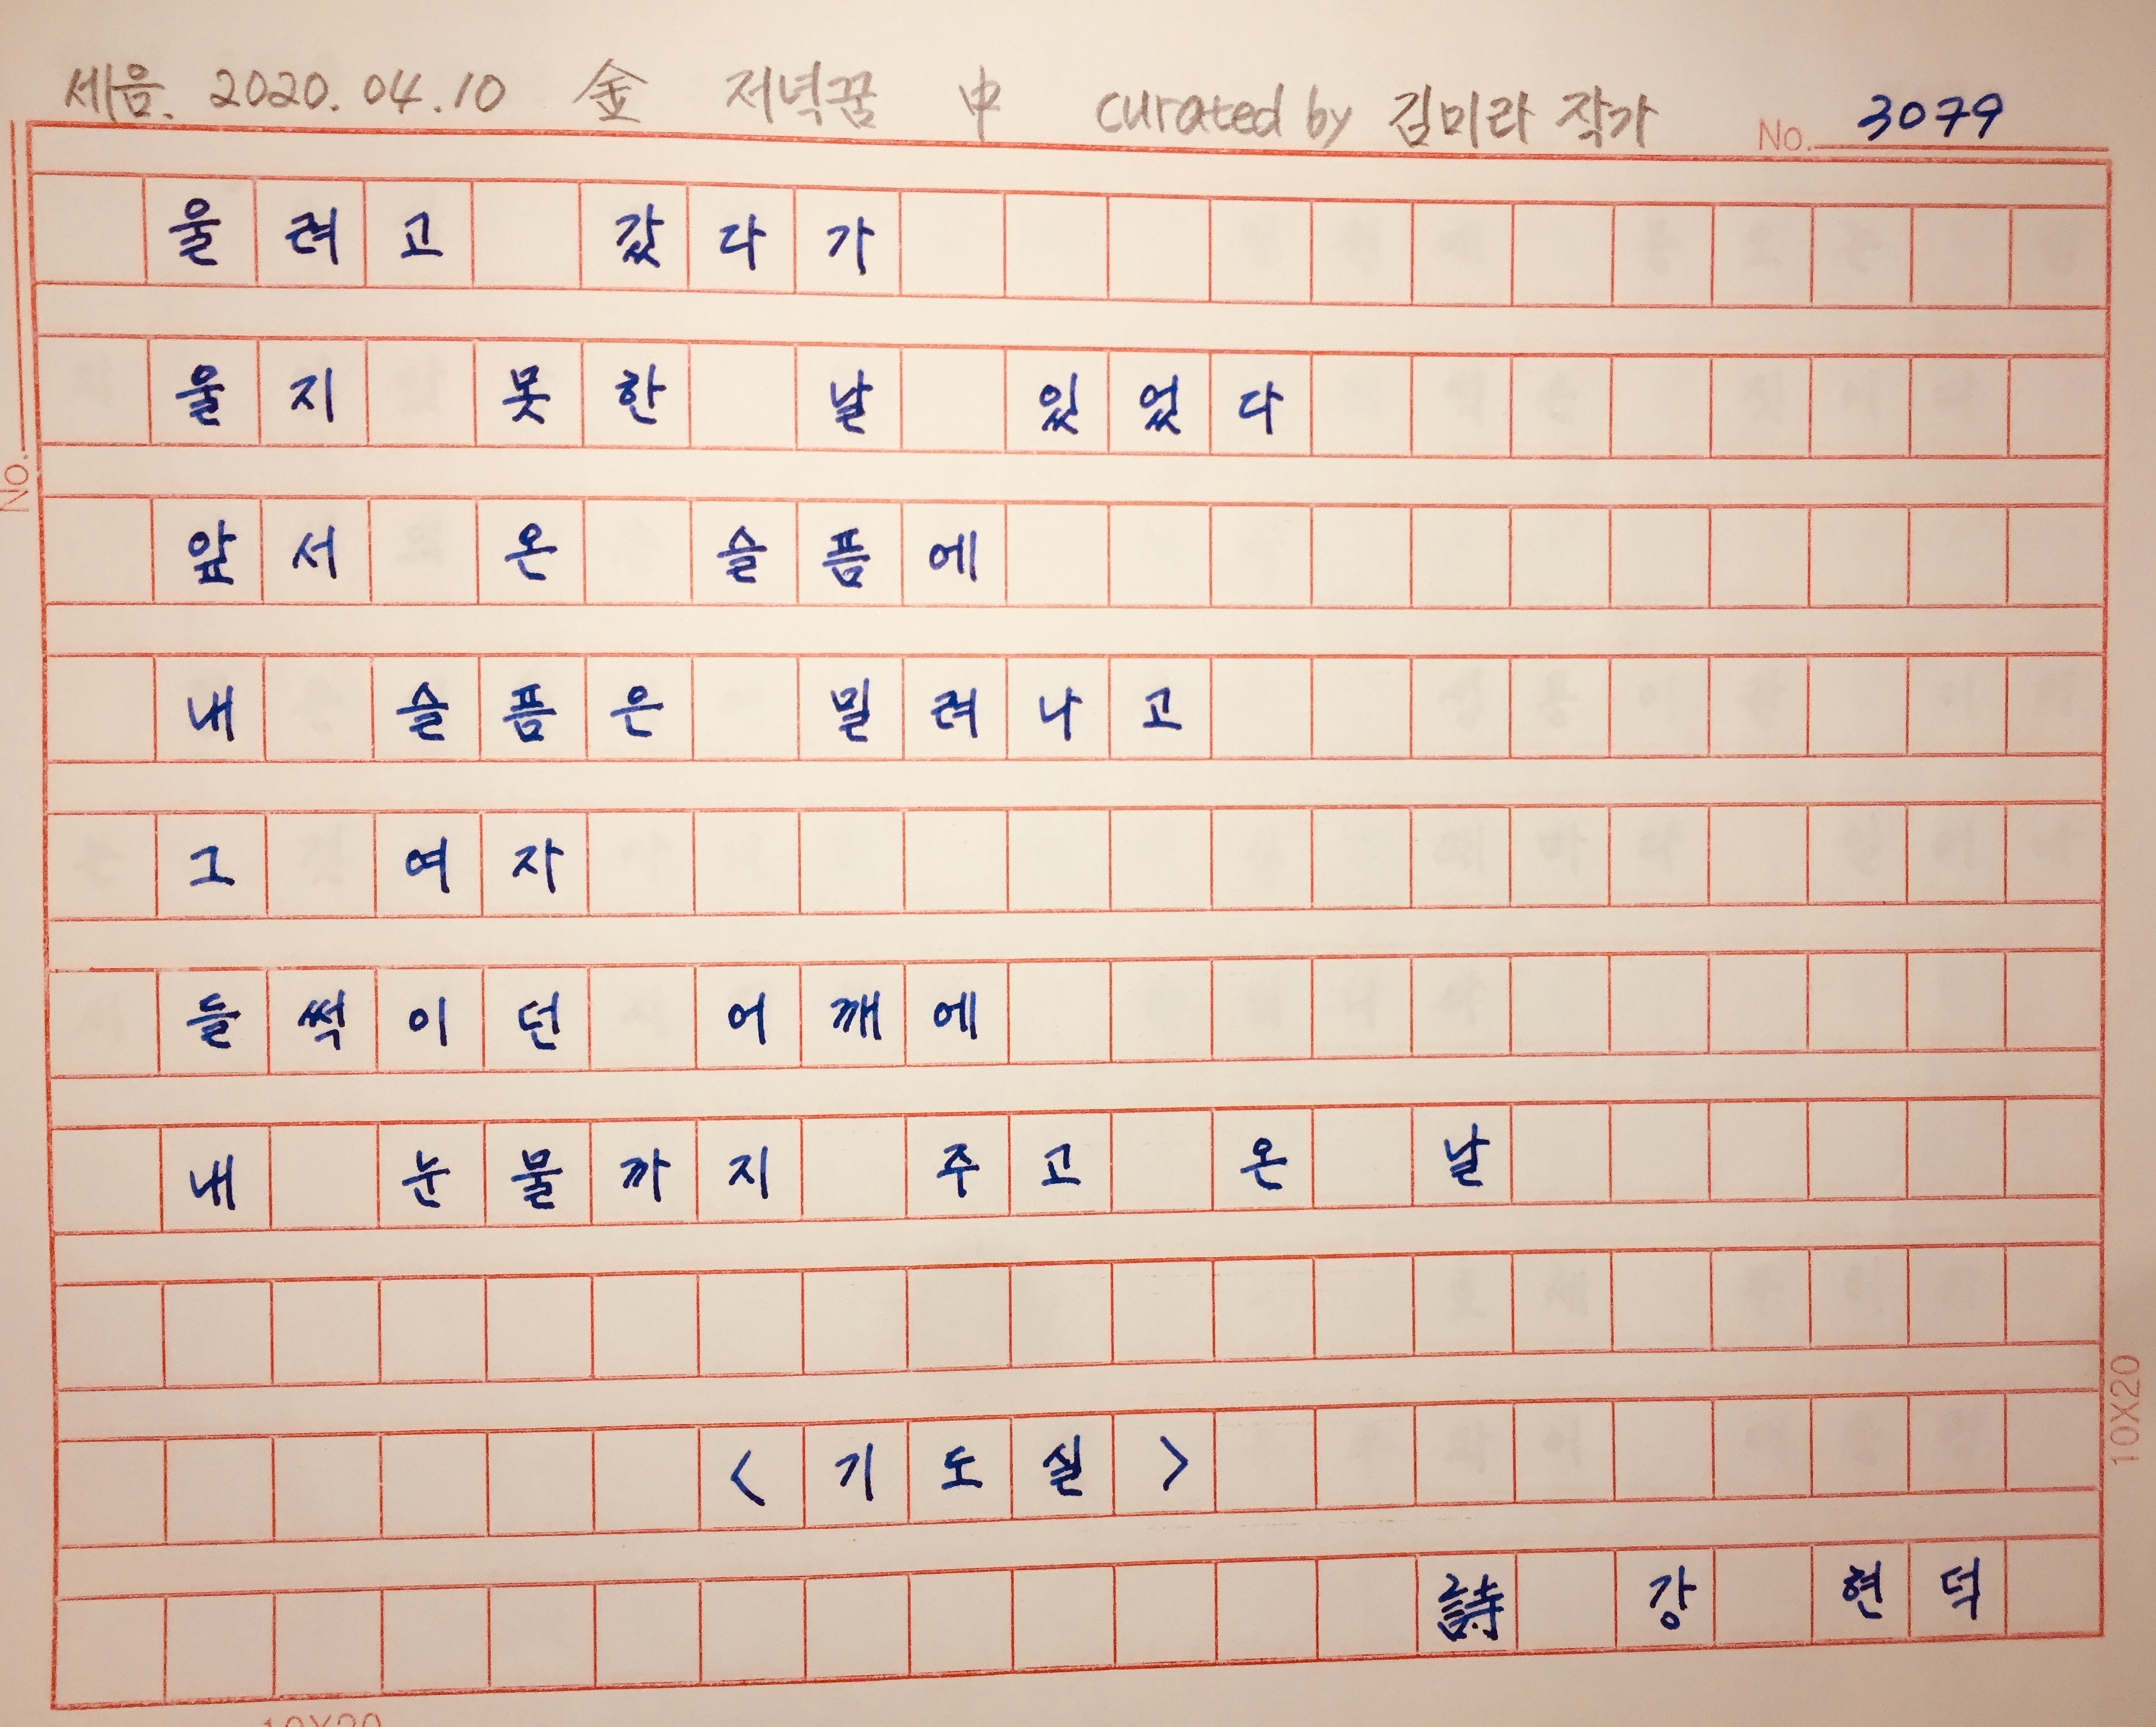 세음. 2020. 04. 10 金 저녁꿈 中 curated by 김미라 작가 No. 3079
울려고 갔다가
울지 못한 날 있었다
앞서 온 슬픔에
내 슬픔은 밀려나고
그 여자
들썩이던 어깨에
내 눈물까지 주고 온 날
<기도실>
詩 강 현덕
No.
10X20
10X20